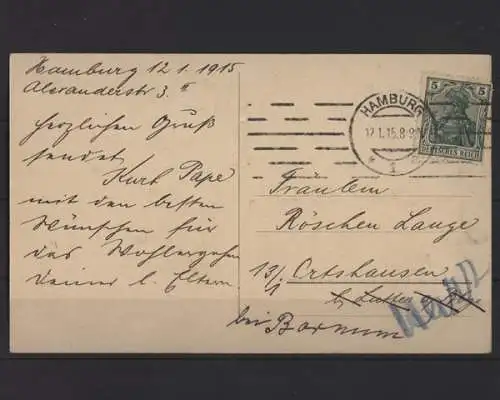 Hamburg 12.1.1915
Alexanderstr 3. II
herzlichen Gruß
sendet
Kurt Pape
mit den besten
Wünschen für
das Wohlergehen
deiner l. Eltern
HAMBURG
12.1.15.8-9
* 1
5 5
DEUTSCHES REICH
Fräulein
Röschen Lange
13/1 Ortshausen
bei Bornum